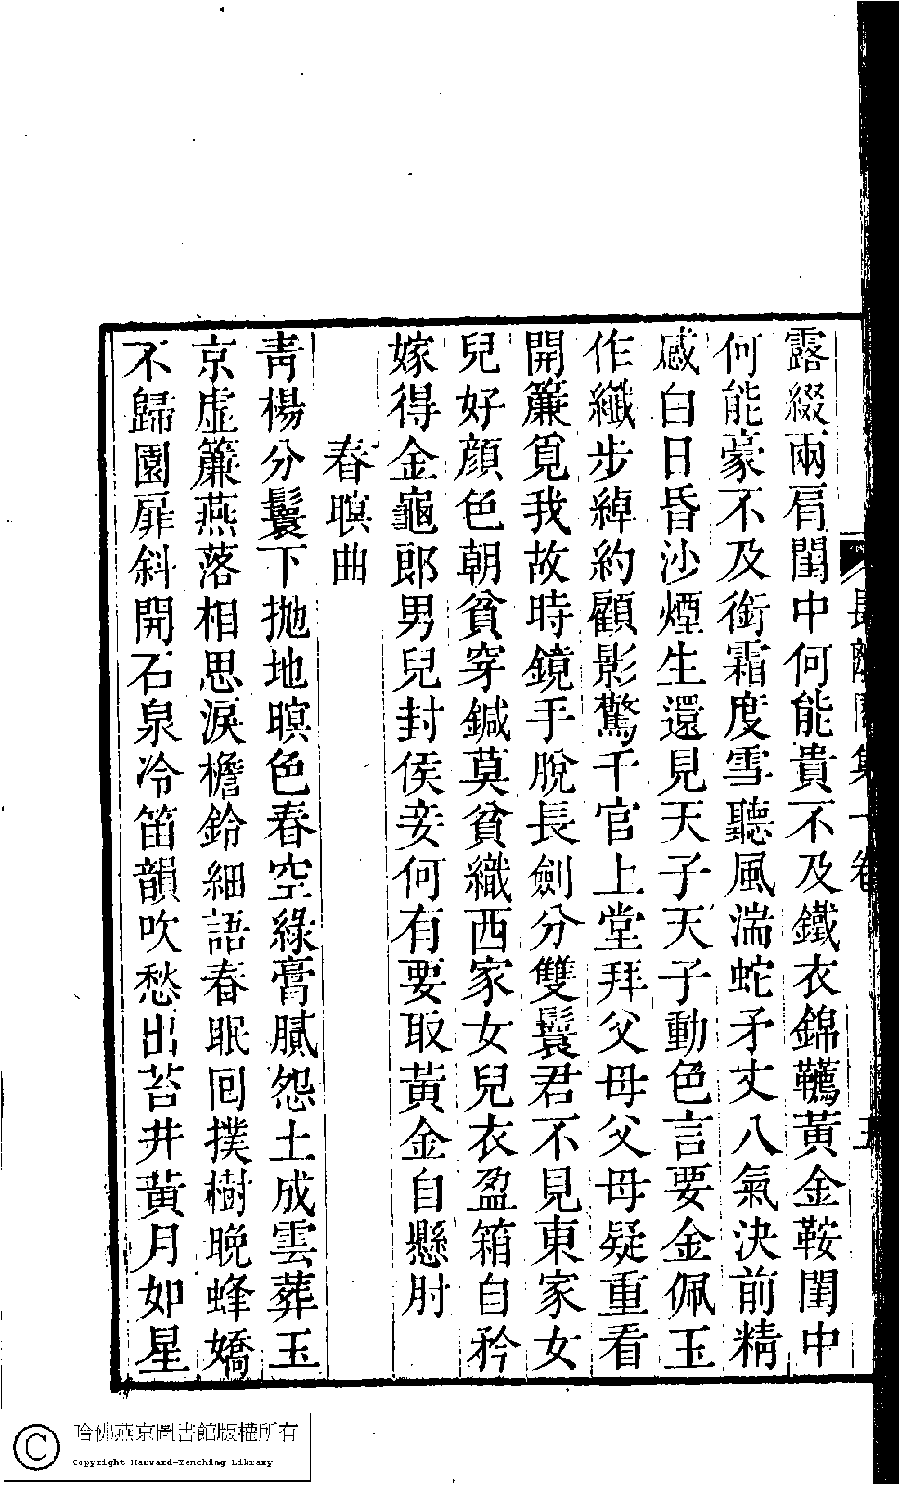 露綴兩肩閨中何能貴不及鐵衣錦韉黃金鞍閨中
何能豪不及銜霜度雪聽風湍蛇矛丈八氣決前精
感白日昏沙煙生還見天子天子動色言要金佩玉
作纖步綽約顧影驚千官上堂拜父母父母疑重看
開簾覓我故時鏡手脫長劍分雙鬟君不見東家女
兒好顏色朝貧穿鍼莫貧織西家女兒衣盈箱自矜
嫁得金龜郎男兒封侯妾何有要取黃金自懸肘
春暝曲
靑楊分鬟下拋地暝色春空綠膏膩怨土成雲葬玉
京虛簾燕落相思淚檐鈴細語春眠回撲樹晚蜂嬌
不歸園扉斜開石泉冷笛韻吹愁出苔井黃月如星
集十卷
五
哈佛燕京圖書館版權所有
Copyright Harvard-Yenching Library